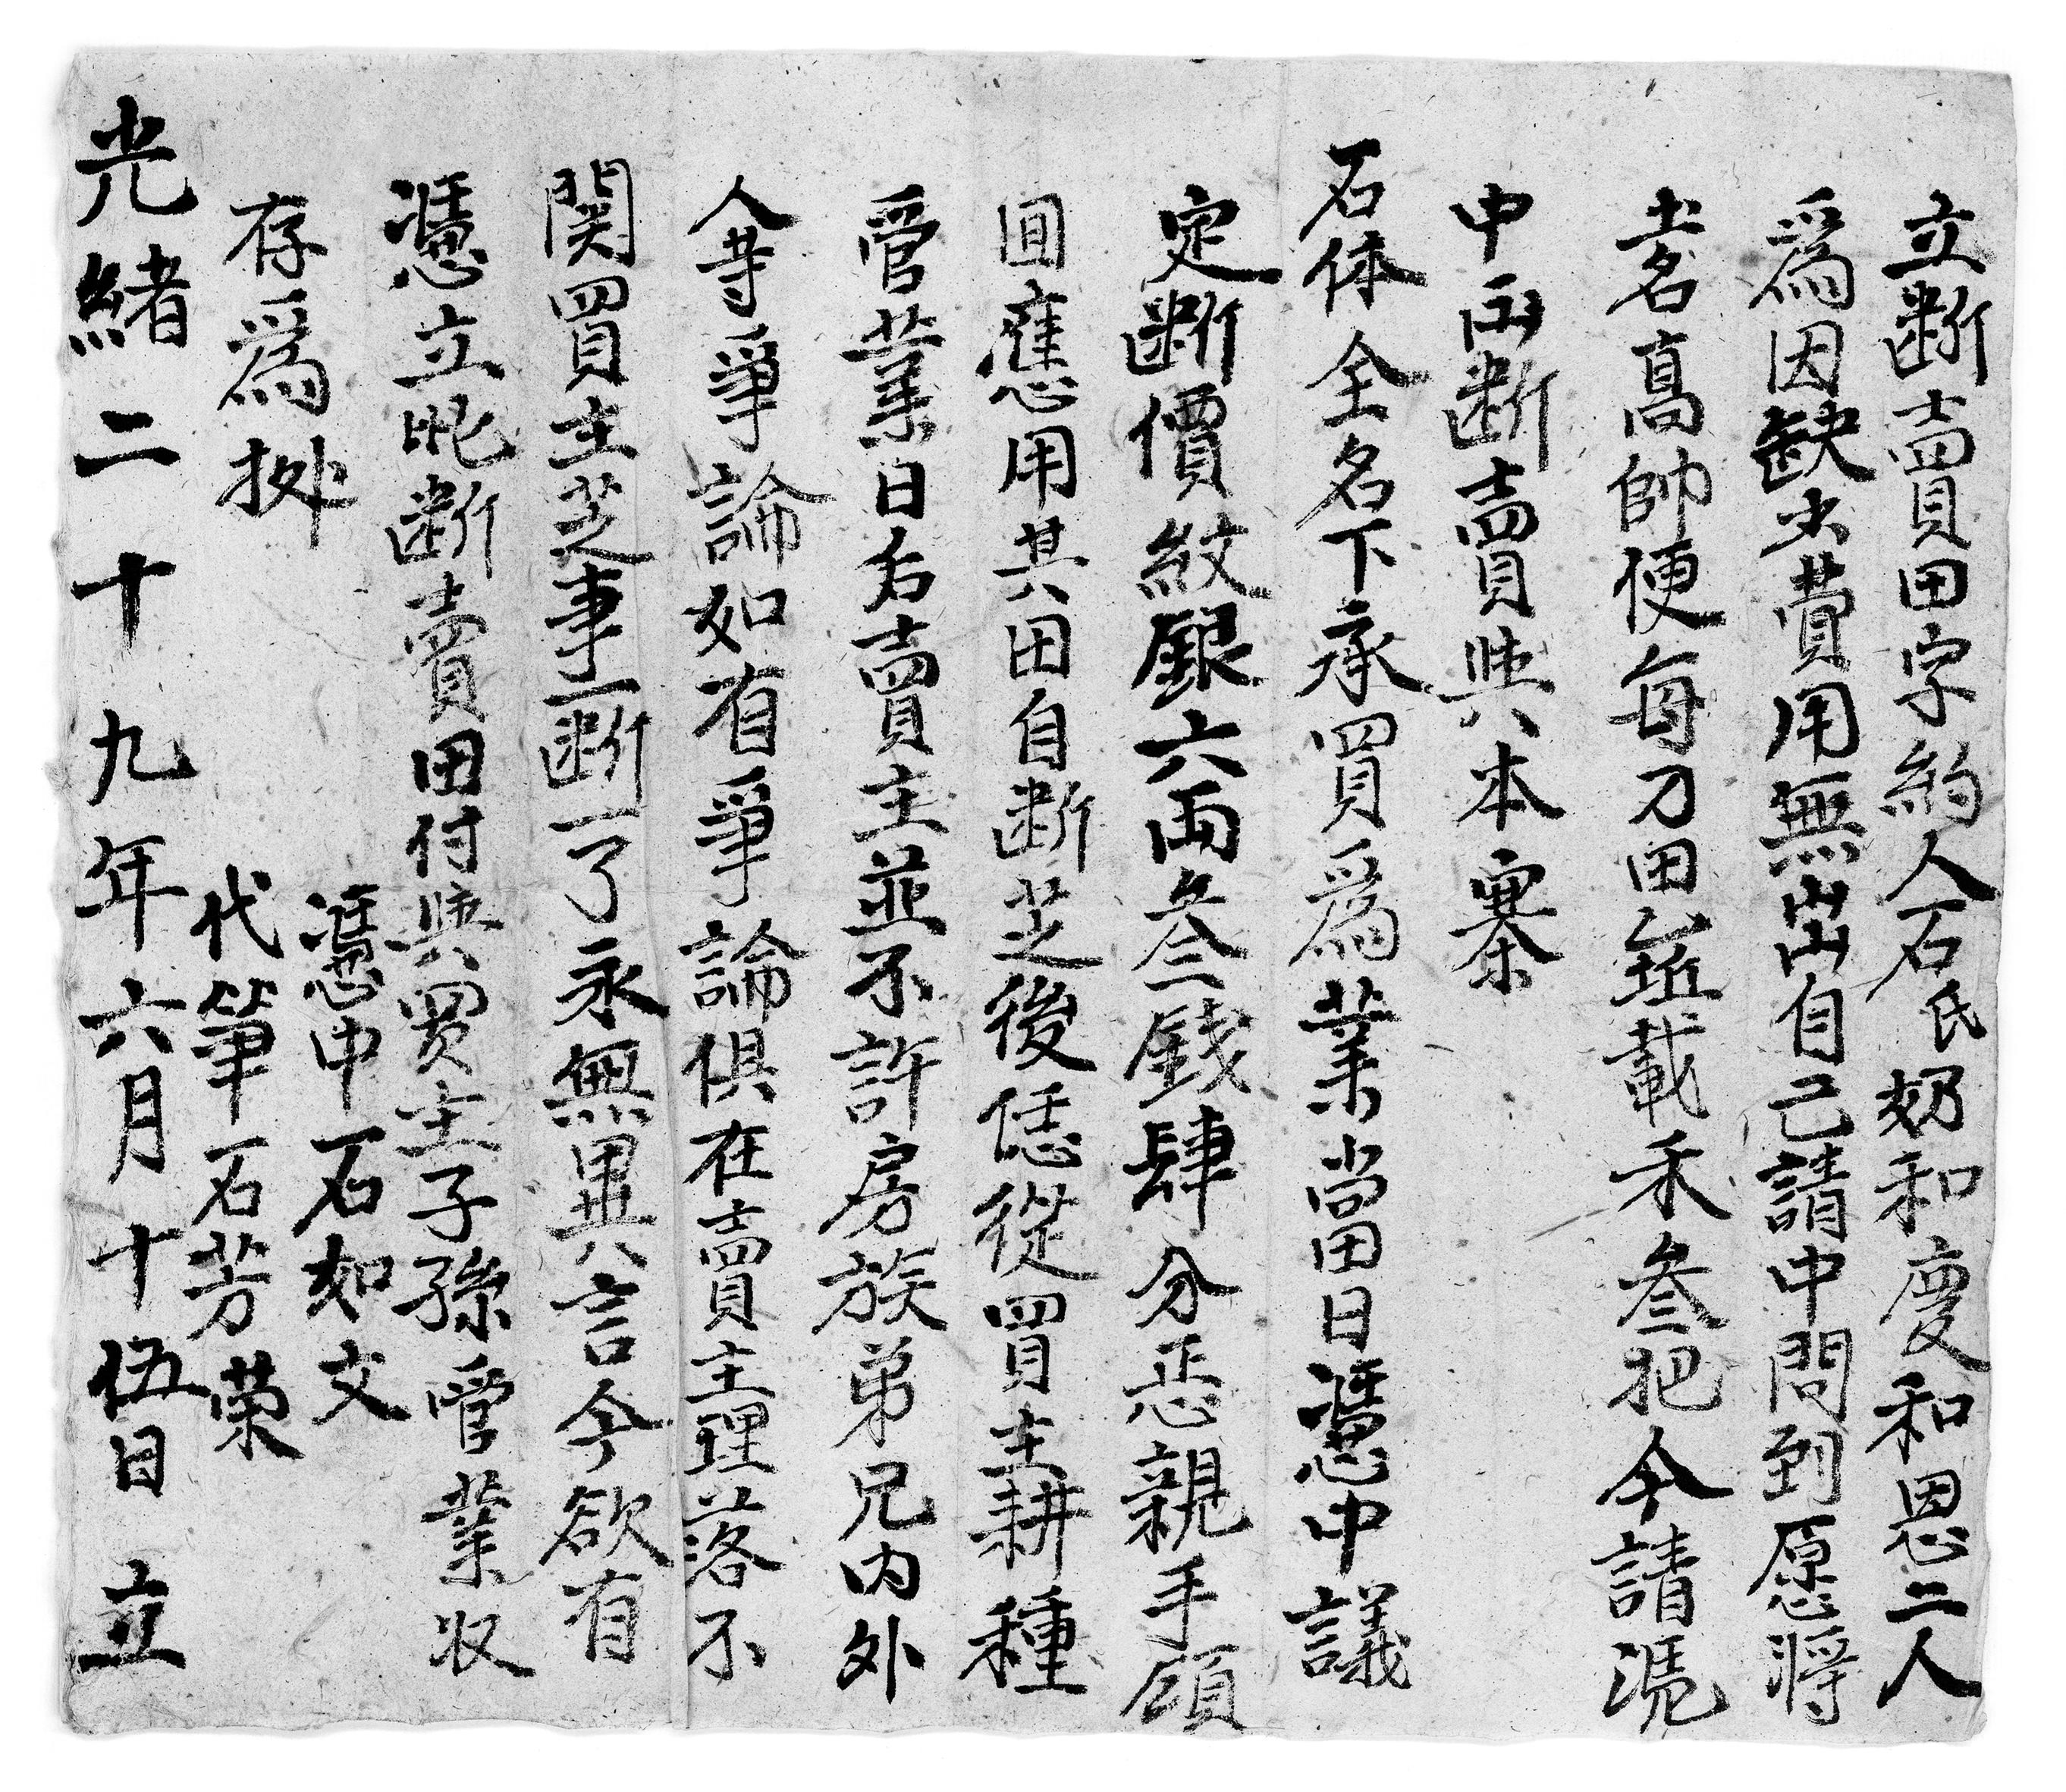 立断賣田字約人石氏奶和慶和恩二人
爲因缺少費用無出自己請中問到愿將
土名高帥便每刀田㘵載禾叁把今請凴
中出断賣與本寨
石体全名下承買爲業當日憑中議
定断價紋銀六両叁錢肆分恁親手領
回應用其田自断芝後恁從買主耕種
管業日后賣主並不許房族弟兄内外
人等爭論如有爭論俱在賣主理落不
関買主芝事一断一了永無異言今欲有
憑立此断賣田付與買主子孫管業收
存爲拠
憑中石如文
代筆石芳荣
光緒二十九年六月十伍日立